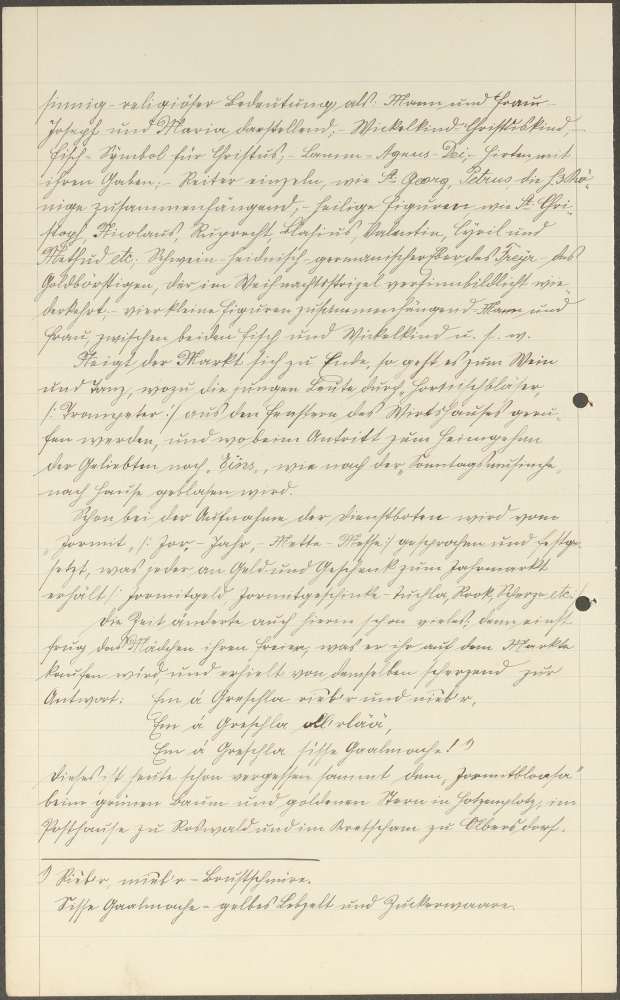 sinnig-religiöser Bedeutung als: Mann und Frau-
Josef und Maria darstellend; - Wickelkind-Christuskind, -
Fisch-Symbol für Christus, - Lamm-Agnus-Dei, - Hirten mit
ihren Gaben; - Reiter einzeln, wie St. Georg, Petrus, die hl. 3 Kö-
nige zusammenhängend; - heilige Figuren wie St. Chri-
stoph, Nicolaus, Ruprecht, Blasius, Valentin, Cyril und
Method etc; Schwein-heidnisch-germanischer Eber des Freyr-des
Goldborstigen, der im Weihnachtsstrizel versinnbildlicht wie-
derkehrt, - vier kleine Figuren zusammenhängend-Mann und
Frau zwischen beiden Fisch und Wickelkind u. s. w.
Neigt der Markt sich zu Ende, so geht es zum Wein
und Tanz, wozu die jungen Leute durch
/: Trompeter :/ aus den Fenstern des Wirtshauses geru-
fen werden, und wo beim Antritt zum Heimgehen
der Geliebten noch „Eins„, wie nach der „Sonntagsmusiche„
nach Hause geblasen wird.
Schon bei der Aufnahme der Dienstboten wird vom
„Jormit„ /: Jor, - Jahr, - Mette - Messe :/ gesprochen und festge-
setzt, was jeder an Geld und Geschenk zum Jahrmarkt
erhält /: Jormitgeld Jormitgeschenke - Tuchla, Rock, Scherze etc. :/
Die Zeit änderte auch hierin schon vieles, denn einst
frug das Mädchen ihren Freier, was er ihr auf dem Markte
kaufen wird und erhielt von demselben scherzend zur
Antwort: Em á Greschla rieb'r und nieb'r,
Em á Greschla
Em á Greschla sisse Gaalmache! 1)
Dieses ist heute schon vergessen sammt dem „Jormitblosa"
beim grünen Baum und goldenen Stern in Hotzenplotz, im
Posthause zu Roswald und im Kretscham zu Olbersdorf.
1) Rieb'r, nieb'r - Brustschnüre.
Sisse Gaalmache - gelbes Lebzelt und Zuckerwaare.